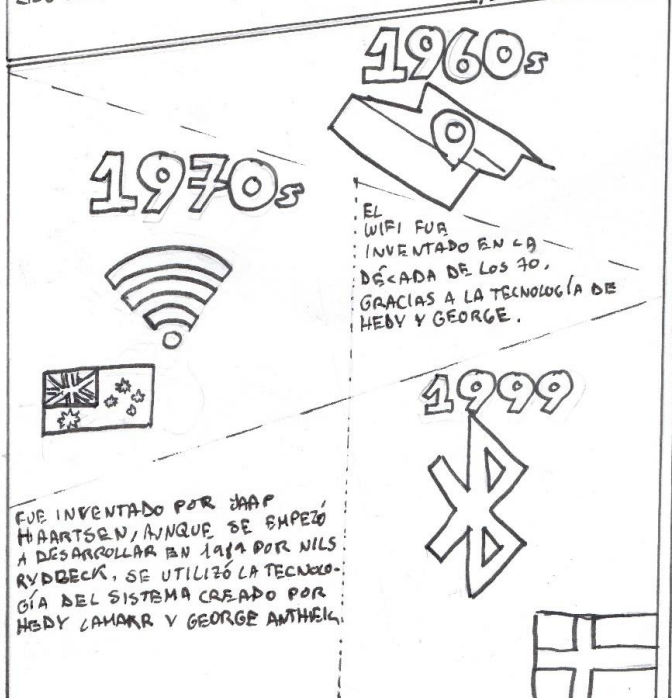 1960s
1970s
EL
WIFI FUE
INVENTADO EN LA
DÉCADA DE LOS 70,
GRACIAS A LA TECNOLOGÍA DE
HEDY Y GEORGE.
1999
FUE INVENTADO POR JAAP
HAARTSEN, AUNQUE SE EMPEZÓ
A DESARROLLAR EN 1989 POR NILS
RYDBECK. SE UTILIZÓ LA TECNOLO-
GÍA DEL SISTEMA CREADO POR
HEDY LAMARR Y GEORGE ANTHEIL.